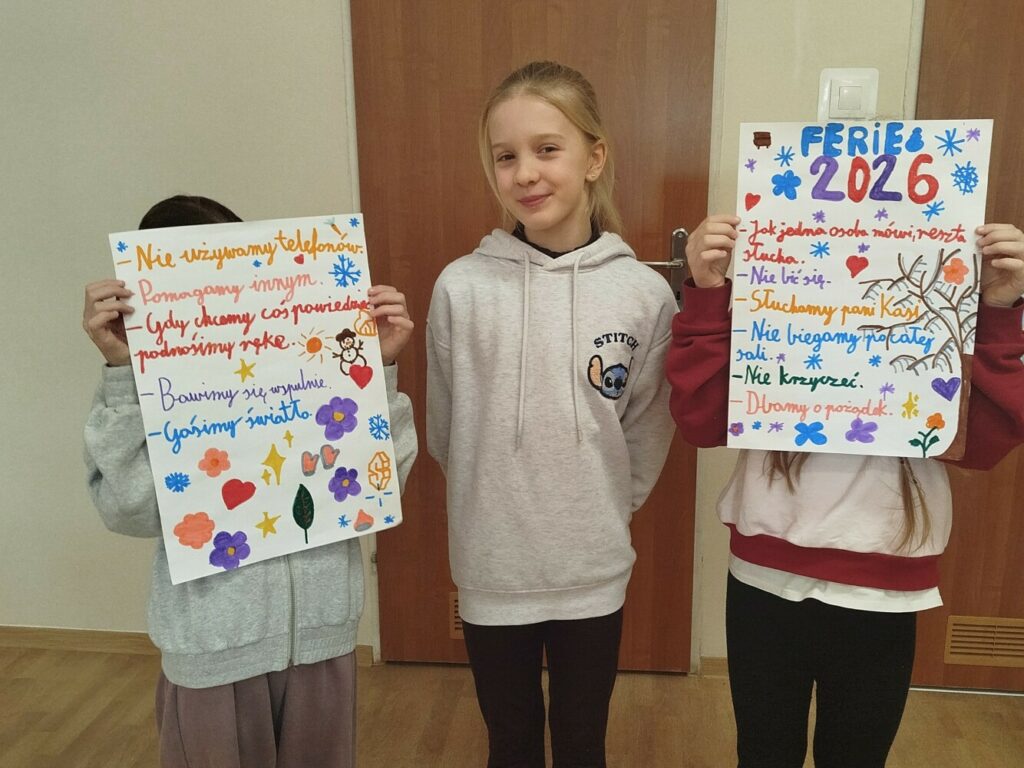 - Nie używamy telefonów.
- Pomagamy innym.
- Gdy chcemy coś powiedzieć
podnosimy rękę.
- Bawimy się wspulnie.
- Gasimy światło.
STITCH
FERIE
2026
- Jak jedna osoba mówi, reszta
słucha.
- Nie bić się.
- Słuchamy pani Kasi
- Nie biegamy po całej
sali.
- Nie krzyczeć.
- Dbamy o pożądek.